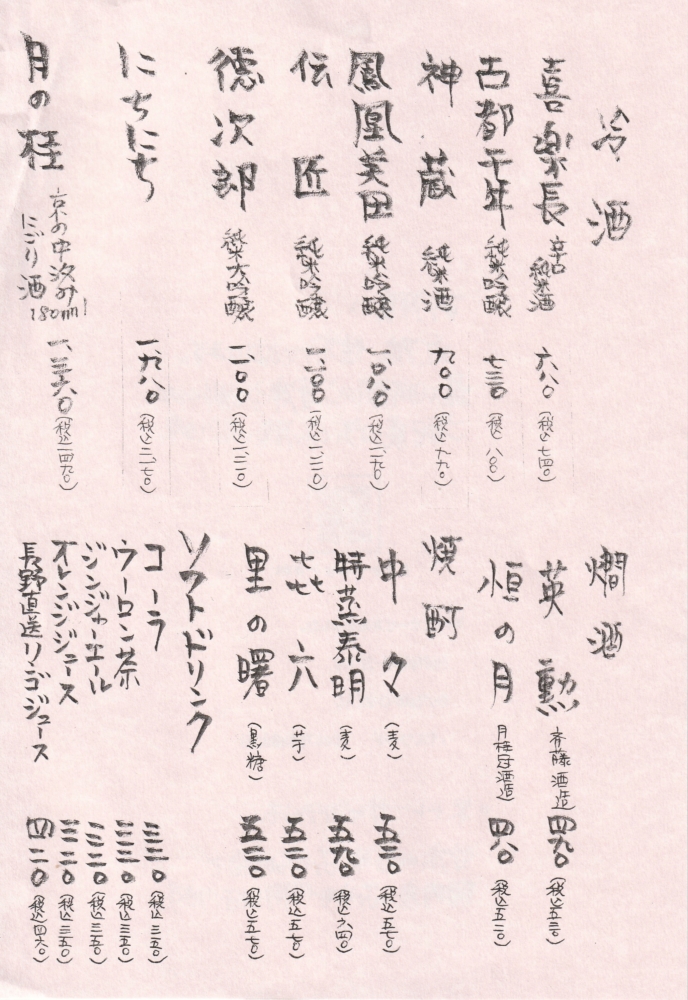 冷酒
喜楽長 辛口純米酒 六八〇(税込七四〇)
古都千年 純米吟醸 七三〇(税込八〇〇)
神蔵 純米酒 九〇〇(税込九九〇)
鳳凰美田 純米吟醸 一、〇八〇(税込一、一九〇)
伝匠 純米吟醸 一、一〇〇(税込一、二一〇)
徳次郎 純米大吟醸 一、二〇〇(税込一、三二〇)
にちにち 一、九八〇(税込二、一七〇)
月の桂 京の中汲み
にごり酒 180ml 一、三六〇(税込一、四九〇)
燗酒
英勲 斉藤酒造 四九〇(税込五三〇)
恒の月 月桂冠酒造 四八〇(税込五二〇)
焼酎
中々(麦) 五二〇(税込五七〇)
特蒸泰明(麦) 五九〇(税込六四〇)
㐂六(芋) 五二〇(税込五七〇)
里の曙(黒糖) 五二〇(税込五七〇)
ソフトドリンク
コーラ 三二〇(税込三五〇)
ウーロン茶 三二〇(税込三五〇)
ジンジャーエール 三二〇(税込三五〇)
オレンジジュース 三二〇(税込三五〇)
長野直送リンゴジュース 四二〇(税込四六〇)